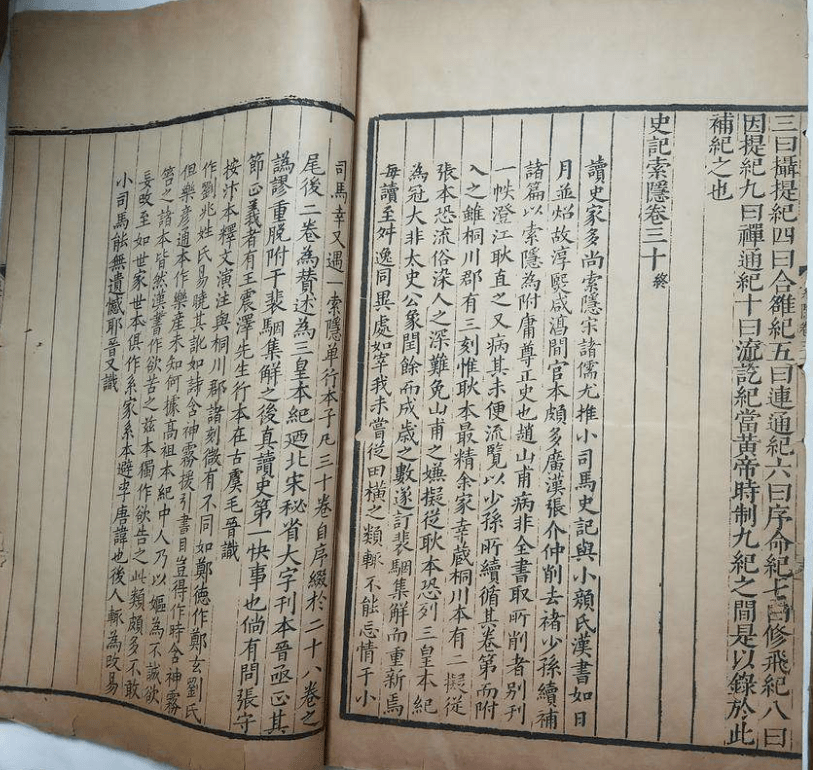 三曰攝提紀四曰合雒紀五曰連通紀六曰序命紀七曰修飛紀八曰
因提紀九曰禪通紀十曰流訖紀當黃帝時制九紀之間是以錄於此
補紀之也
史記索隱卷三十 終
讀史家多尚索隱宋諸儒尤推小司馬史記與小顏氏漢書如日
月並炤故淳熙咸湻間官本頗多廣漢張介仲削去褚少孫續補
諸篇以索隱為附庸尊正史也趙山甫病非全書取所削者別刊
一帙澄江耿直之又病其未便流覽以少孫所續循其卷第而附
入之雖桐川郡有三刻惟耿本最精余家幸藏桐川本有二擬從
張本恐流俗染人之深難免山甫之嫌擬從耿本恐列三皇本紀
為冠大非太史公象閏餘而成歲之數遂訂裴駰集解而重新焉
每讀至舛逸同異處如宰我未嘗從田橫之類輒不能忘情于小
司馬幸又遇一索隱單行本子凡三十卷自序綴於二十八卷之
尾後二卷為贊述為三皇本紀迺北宋秘省大字刊本晉亟正其
譌謬重脫附于裴駰集解之後真讀史第一快事也倘有問張守
節正義者有王震澤先生行本在古虞毛晉識
按汴本釋文演注與桐川郡諸刻微有不同如鄭德作鄭玄劉氏
作劉兆姓氏易曉其訛如詩含神霧援引書目豈得作時含神霧
但樂彥通本作樂産未知何據高祖本紀中人乃以嫗為不誠欲
笞之諸本皆然漢書作欲苦之茲本獨作欲告之此類頗多不敢
妄改至如世家世本俱作系家系本避李唐諱也後人輒為改易
小司馬能無遺憾耶晉又識